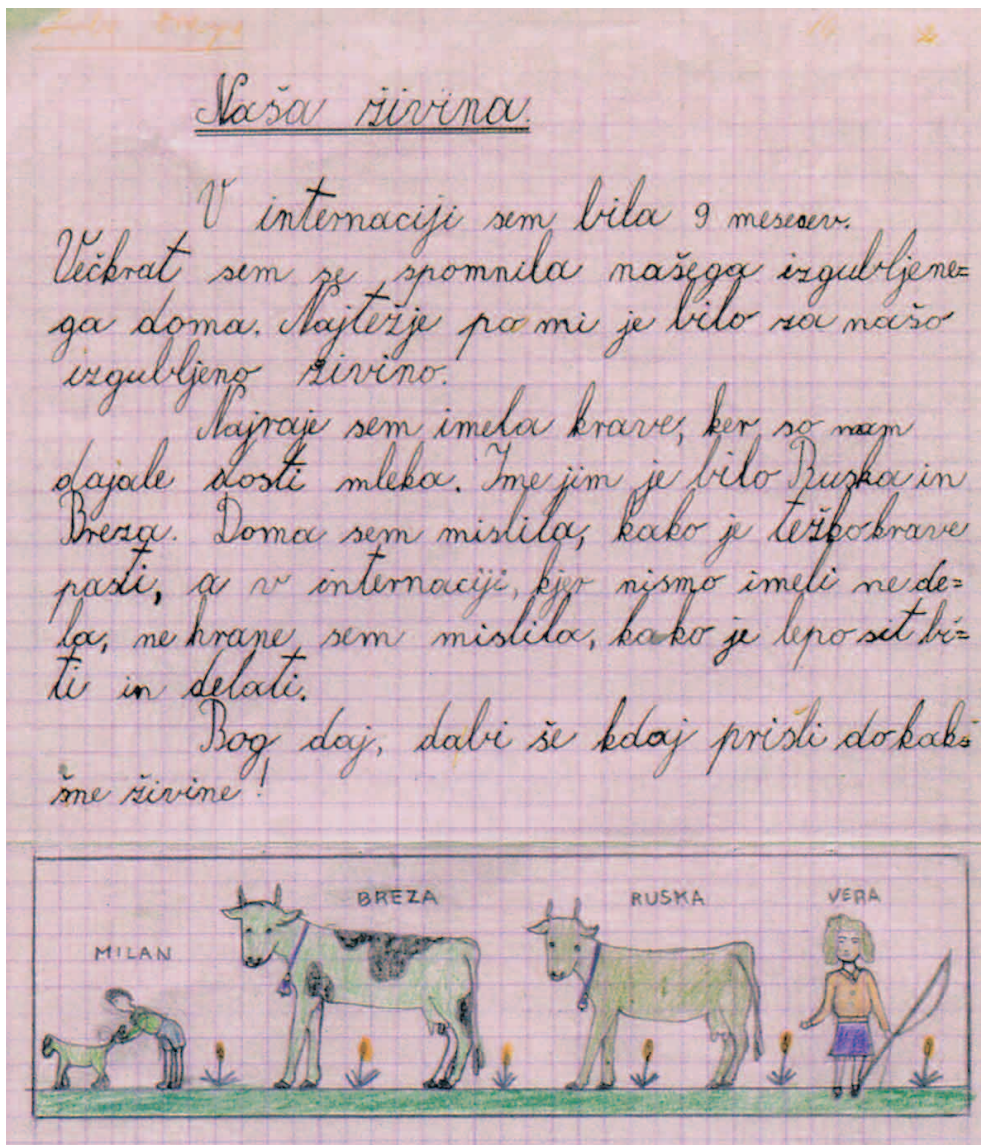 Naša živina.
V internaciji sem bila 9 mesecev.
Večkrat sem se spomnila našega izgubljene=
ga doma. Najtežje pa mi je bilo za našo
izgubljeno živino.
Najraje sem imela krave, ker so nam
dajale dosti mleka. Ime jim je bilo Ruska in
Breza. Doma sem mislila, kako je težko krave
pasti, a v internaciji, kjer nismo imeli ne de=
la, ne hrane, sem mislila, kako je lepo sit bi=
ti in delati.
Bog daj, da bi še kdaj prišli do kak=
šne živine!
MILAN BREZA RUSKA VERA